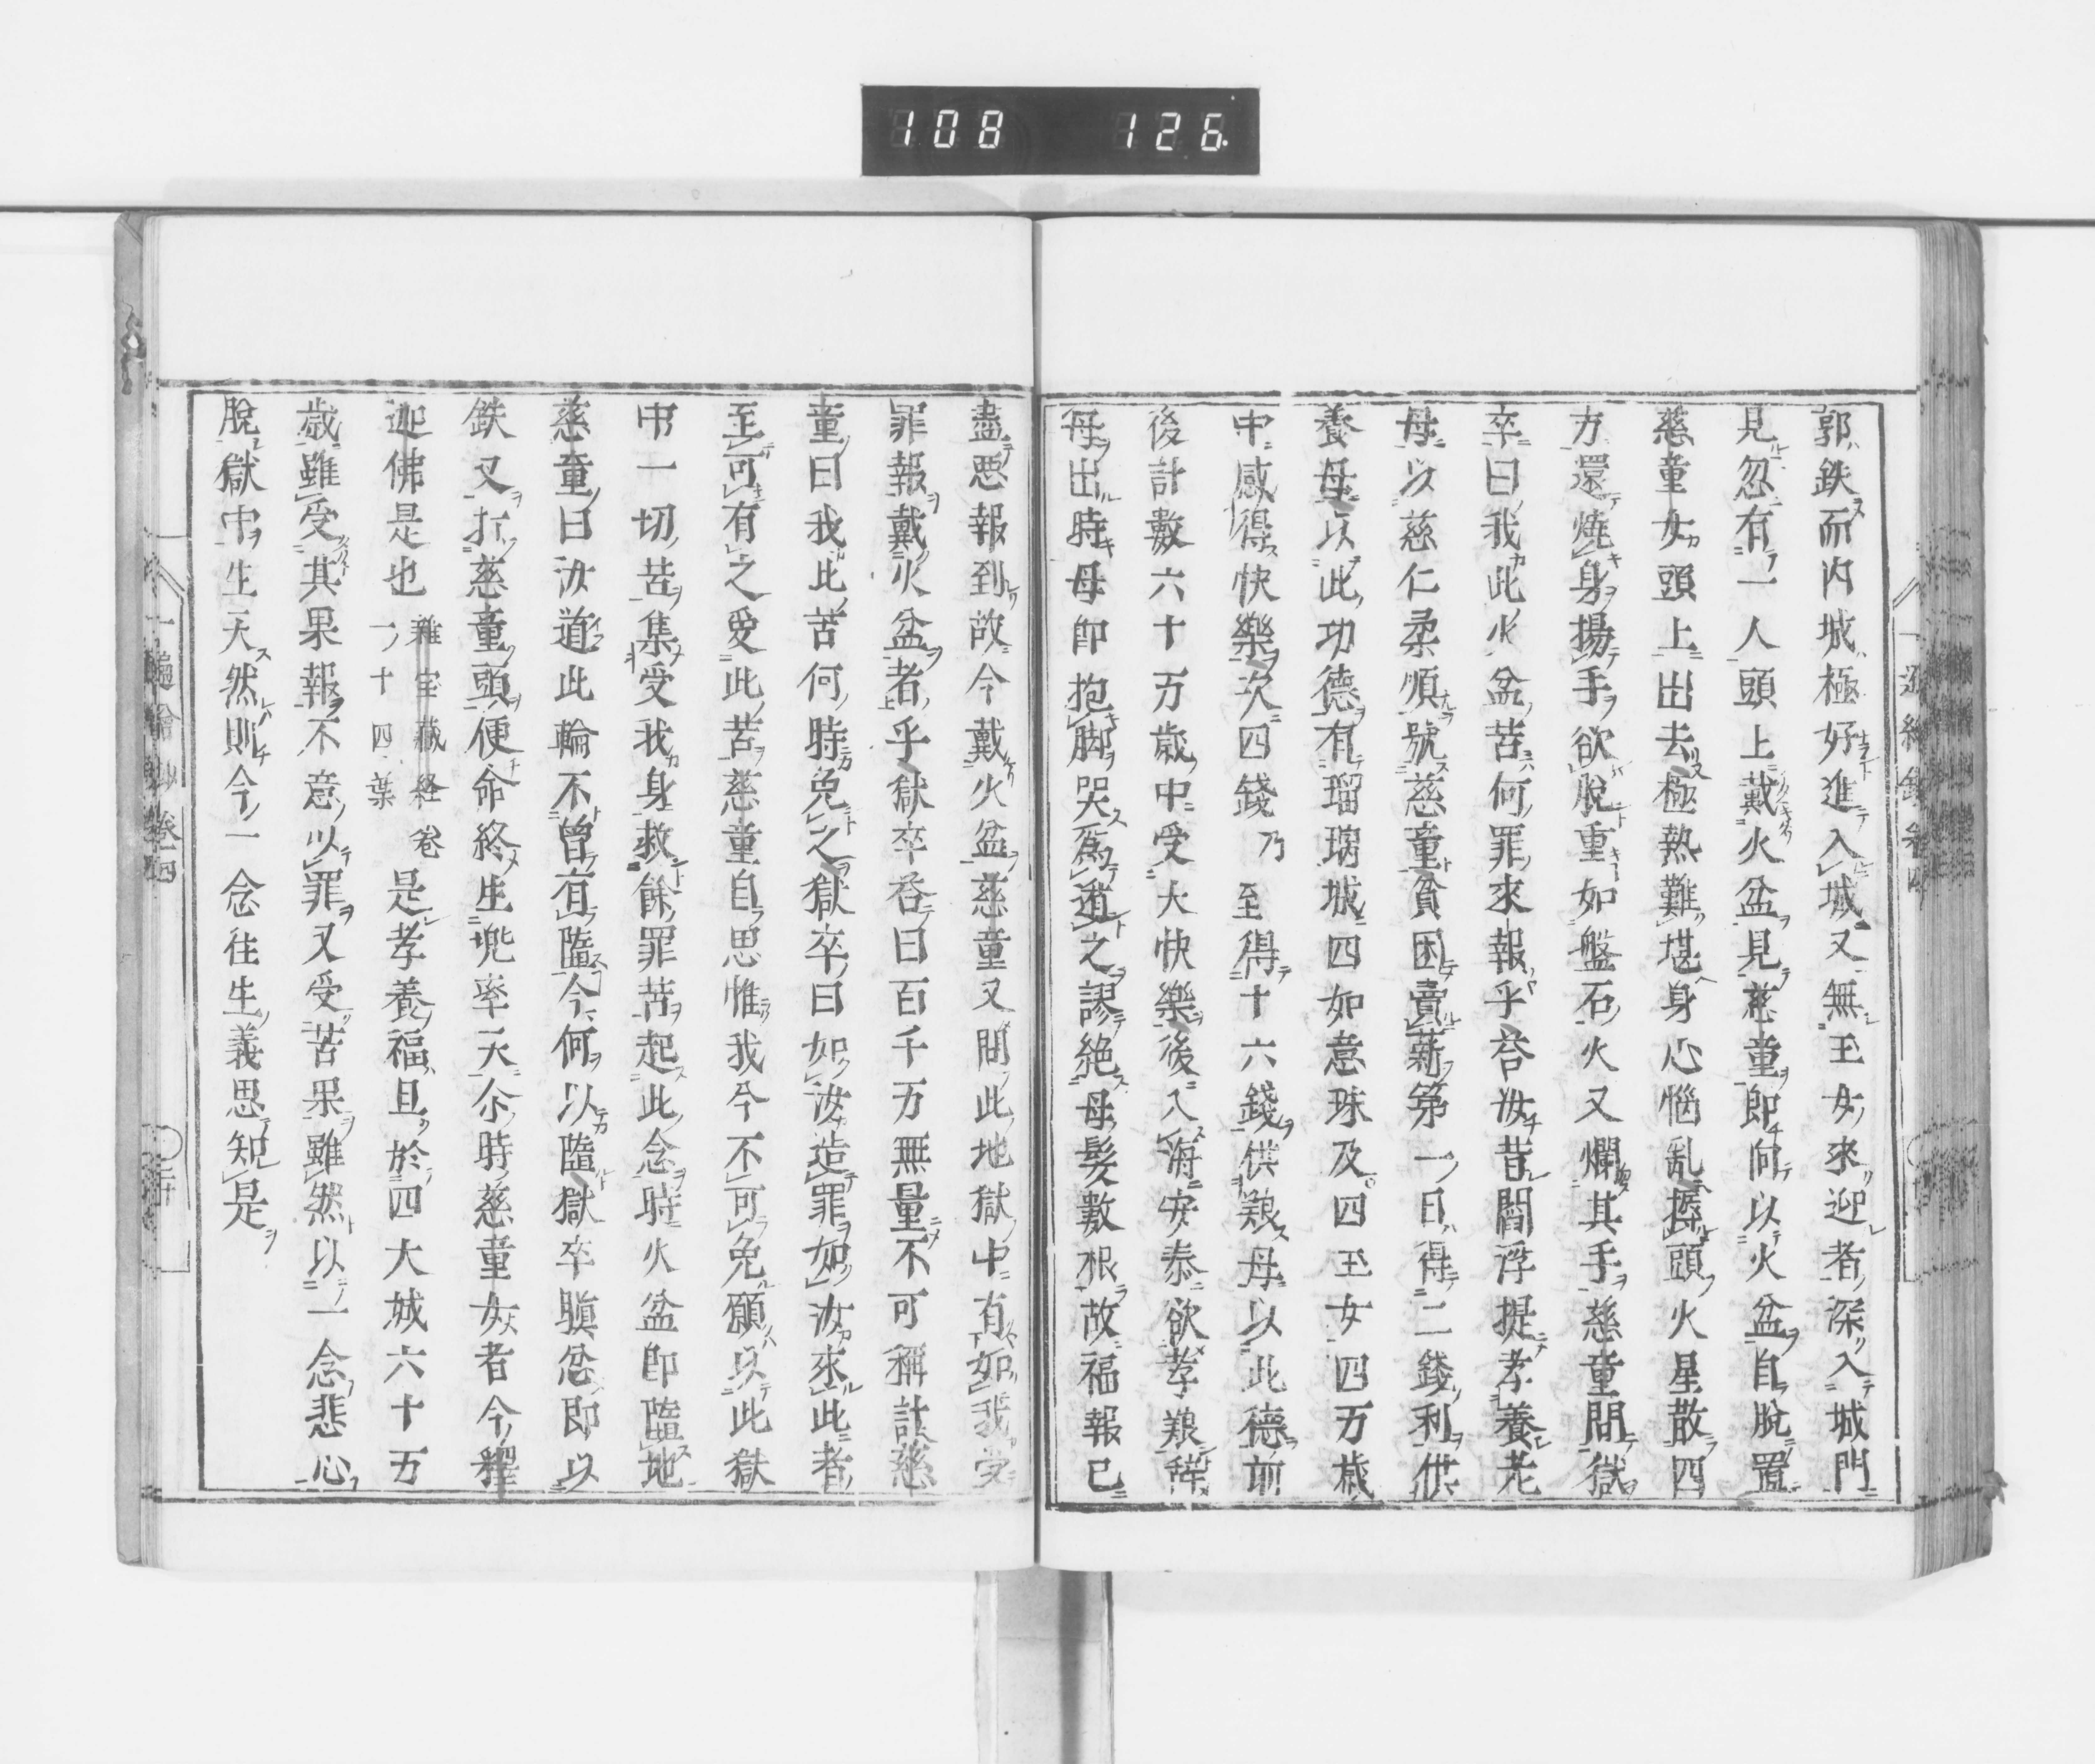 108 126
郭鉄而内城極好進入城又無玉女來迎者深入城門
見忽有一人頭上戴火盆見慈童即向以火盆自脱置
慈童女頭上出去極熱難堪身心惱乱擇頭火星散四
方還燒身揚手欲脱重如盤石火又爛其手慈童問獄
卒曰我此火盆苦何罪來報乎答汝昔閻浮提孝養老
母以慈仁柔順號慈童貧困賣薪第一日得二錢利供
養母以此功德有瑠璃城四如意珠及四玉女四万歳
中感得快樂次四錢乃至得十六錢供粮母以此德前
後計數六十万歳中受大快樂後入海安泰欲孝粮
母出時母即抱脚哭為道之謬絶母髪數根故福報已
盡悪報到故今戴火盆慈童又問此地獄中有如我受
罪報戴火盆者乎獄卒答曰百千万無量不可稱計慈
童曰我此苦何時免之獄卒曰如汝造罪如汝來此者
至可有之受此苦慈童自思惟我今不可免願以此獄
中一切苦集受我身救餘罪苦起此念時火盆即墮地
慈童曰汝道此輪不曾有墮今何以墮獄卒瞋忿即以
鉄叉打慈童頭便命終生兜率天尓時慈童女者今釋
迦佛是也 雜宝藏経一卷十四葉 是孝養福且於四大城六十万
歳雖受其果報不意以罪又受苦果雖然以一念悲心
脱獄中生天然則今一念往生義思知是